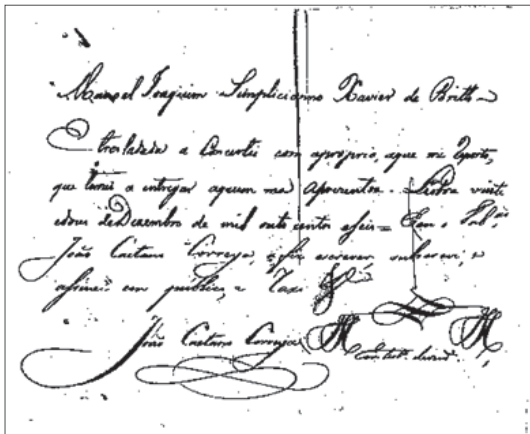 Manoel Joaquim Simplicianno Xavier de Britto
trasladei a Concertei com apropria, aque me Reporto,
que tornei a entregar aquem ma apresentou. Lisboa vinte
edous deDezembro de mil outo centos eseis = Eu
João Caetano Correya, o fiz escrever subscrevi, e
asignei em publico, e
João Caetano Correya